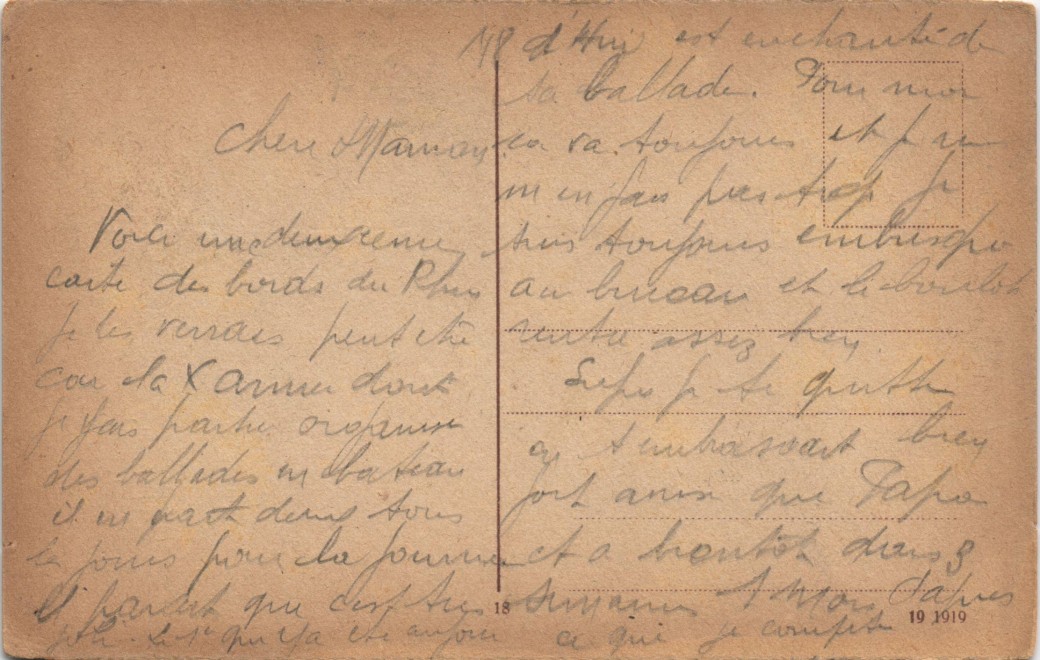 Chere Maman
Voici une deuxieme
carte des bords du Rhin
Je les verrais peut etre
car la X armee dont
je fais partie organise
des ballades en bateau
il en part deux tous
les jours pour la journee
il parait que c'est tres
joli. Le qui y a ete aujour
d'Hui est enchanté de
sa ballade. Pour moi
ca va toujours et je
m'en fais pas trop Je
suis toujours embusqué
au bureau et le boulot
rentre assez bien
Sur ce je te quitte
en t'embrassant bien
fort ainsi que Papa
et a bientot dans 3
semaines 1 mois d'apres
ce que je compte
18
19 1919